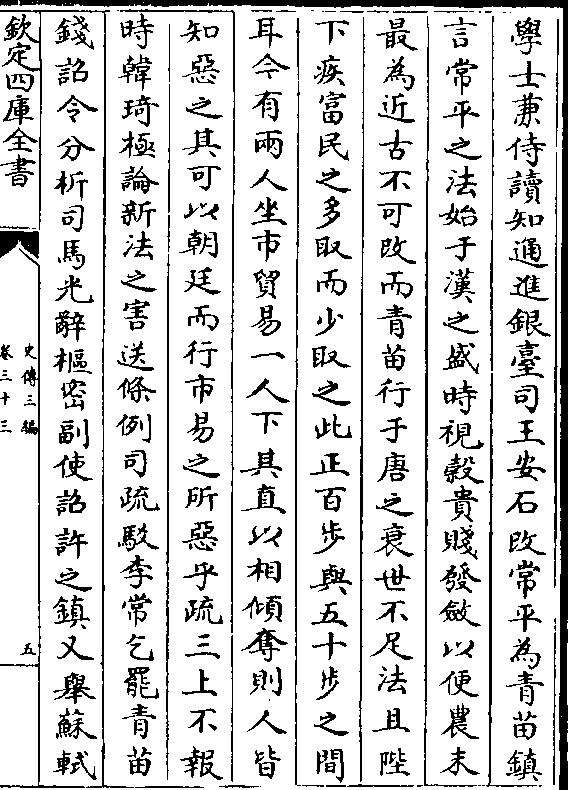 學士兼侍讀知通進銀臺司王安石改常平為青苗鎮
言常平之法始于漢之盛時視穀貴賤發斂以便農末
最為近古不可改而青苗行于唐之衰世不足法且陛
下疾富民之多取而少取之此正百步與五十步之間
耳今有兩人坐市貿易一人下其直以相傾奪則人皆
知惡之其可以朝廷而行市易之所惡乎疏三上不報
時韓琦極論新法之害送條例司疏駁李常乞罷青苗
錢詔令分析司馬光辭樞密副使詔許之鎮又舉蘇軾
欽定四庫全書
史傳三編
卷三十三
五